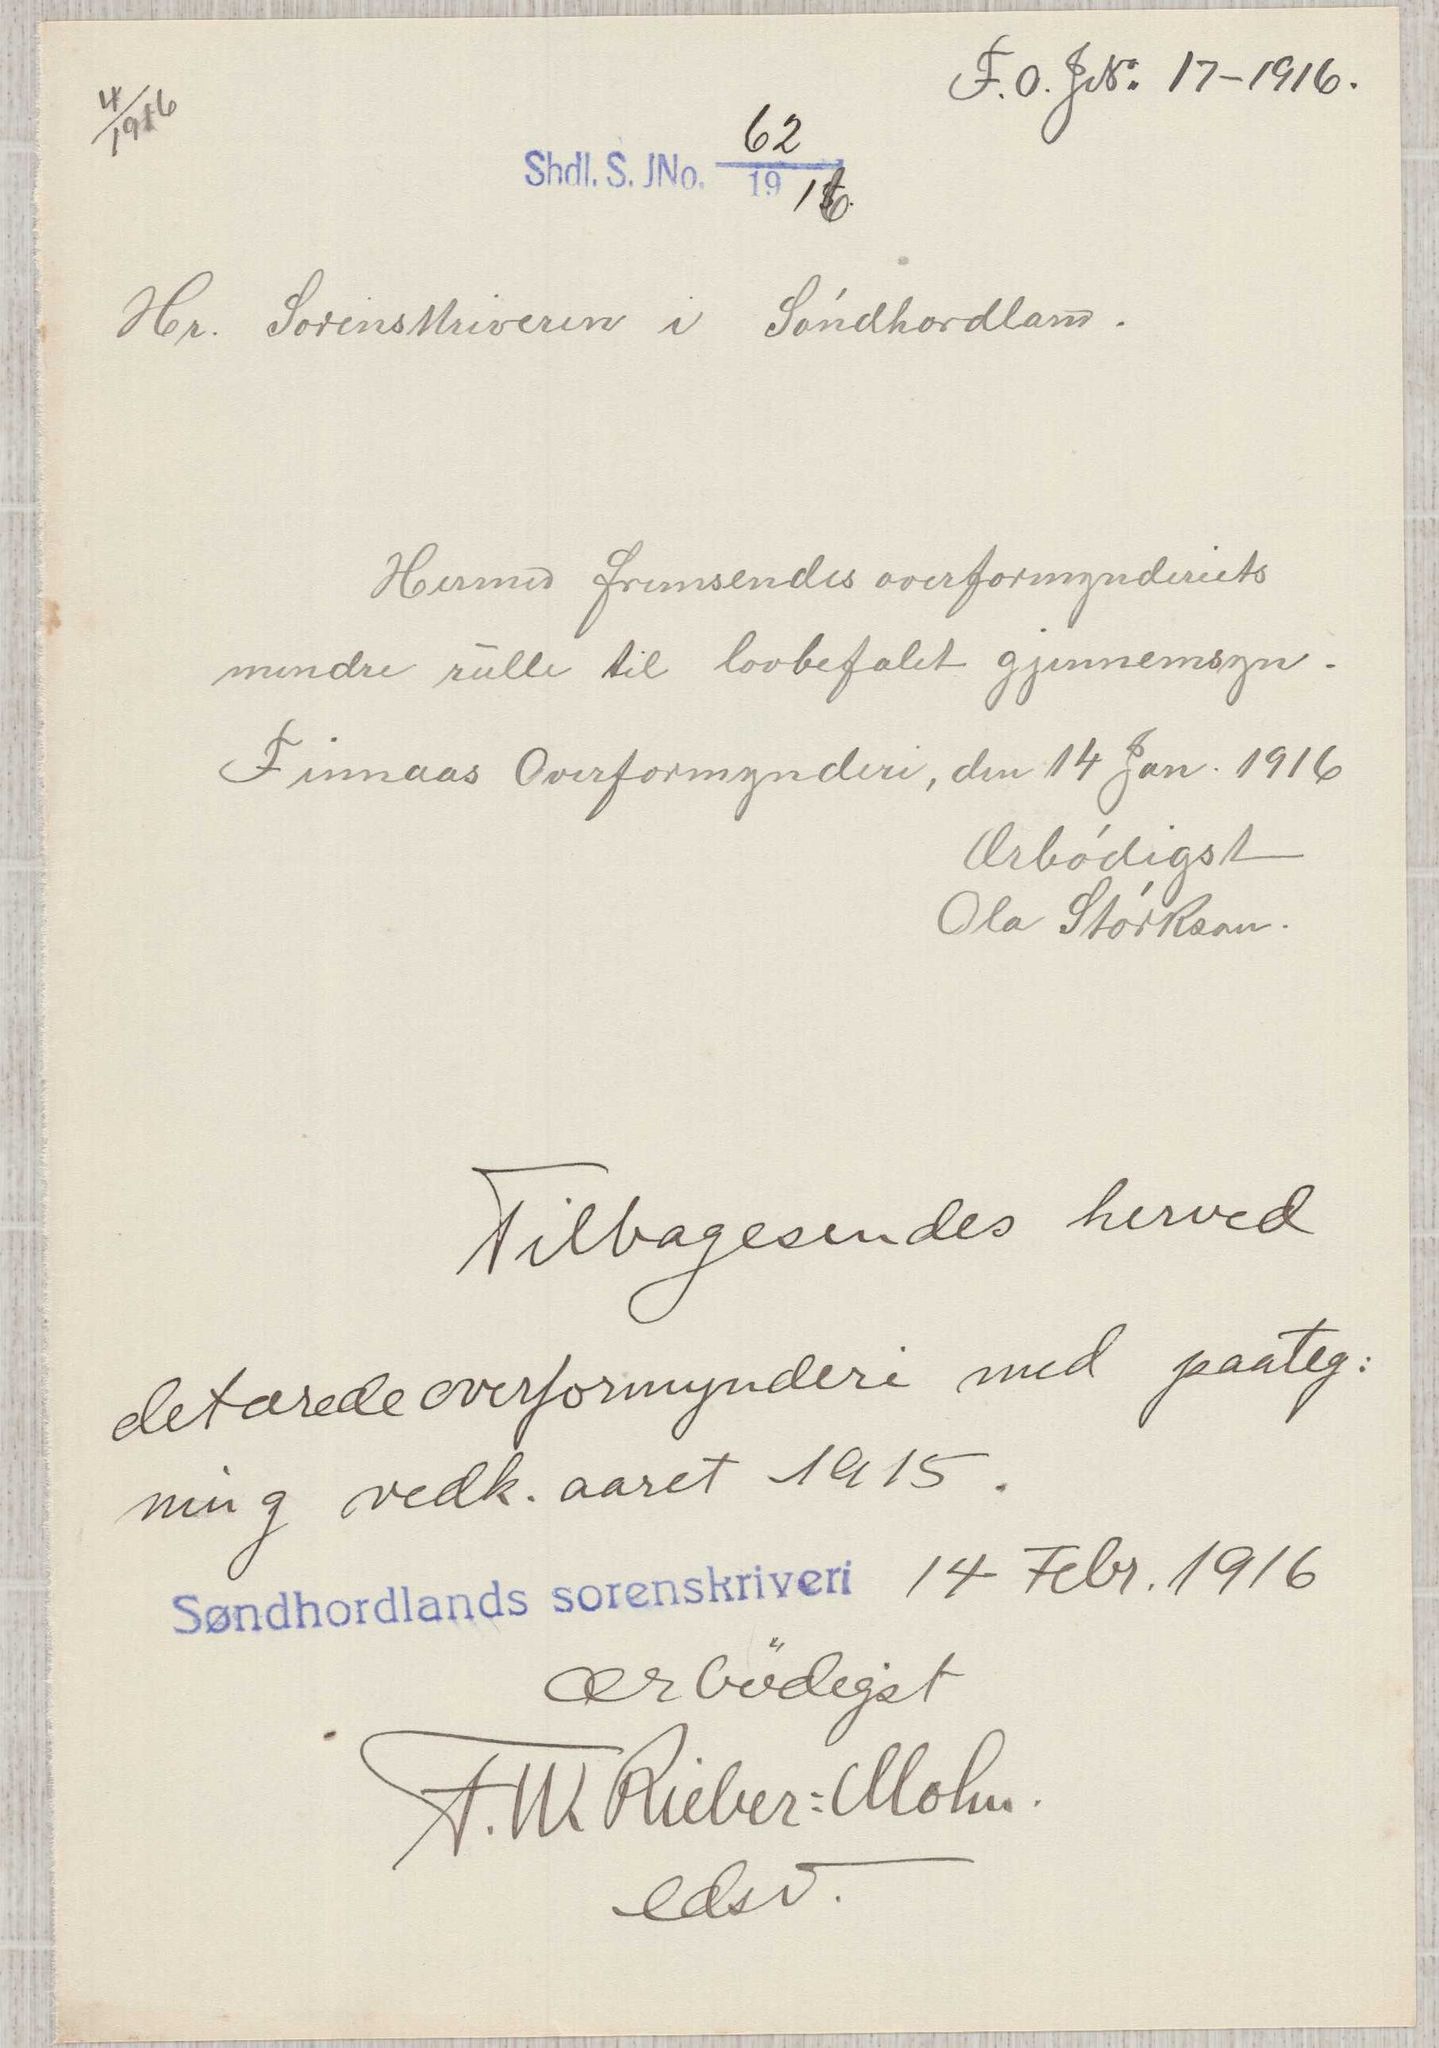 F. O. JN: 17-1916.
4/1916
Shdl. S. JNo. 62/19 16.
Hr. Sorenskriveren i Søndhordland.
Hermed fremsendes overformynderiets
mindre rulle til lovbefalet gjennemsyn.
Finnaas Overformynderi, den 14 Jan. 1916
Ærbødigst
Ola Størkson.
Tilbagesendes herved
det ærede overformynderi med paateg:
ning vedk. aaret 1915.
Søndhordlands sorenskriveri 14 Febr. 1916
ærbødigst
F. W. Rieber=Mohn.
edsv.